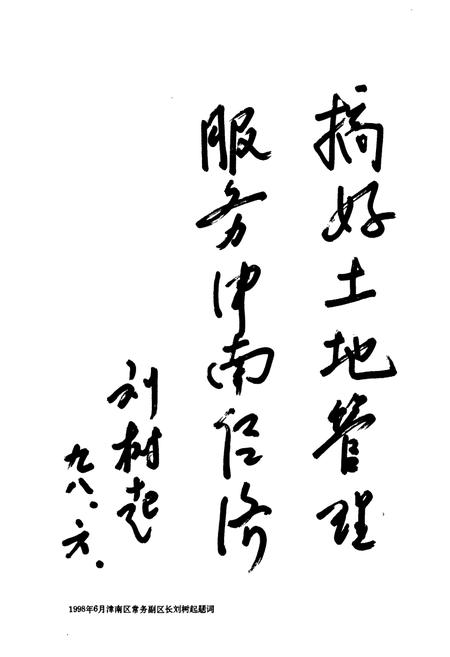 搞好土地管理
服务津南经济
刘树起
九八.六.
1998年6月津南区常务副区长刘树起题词